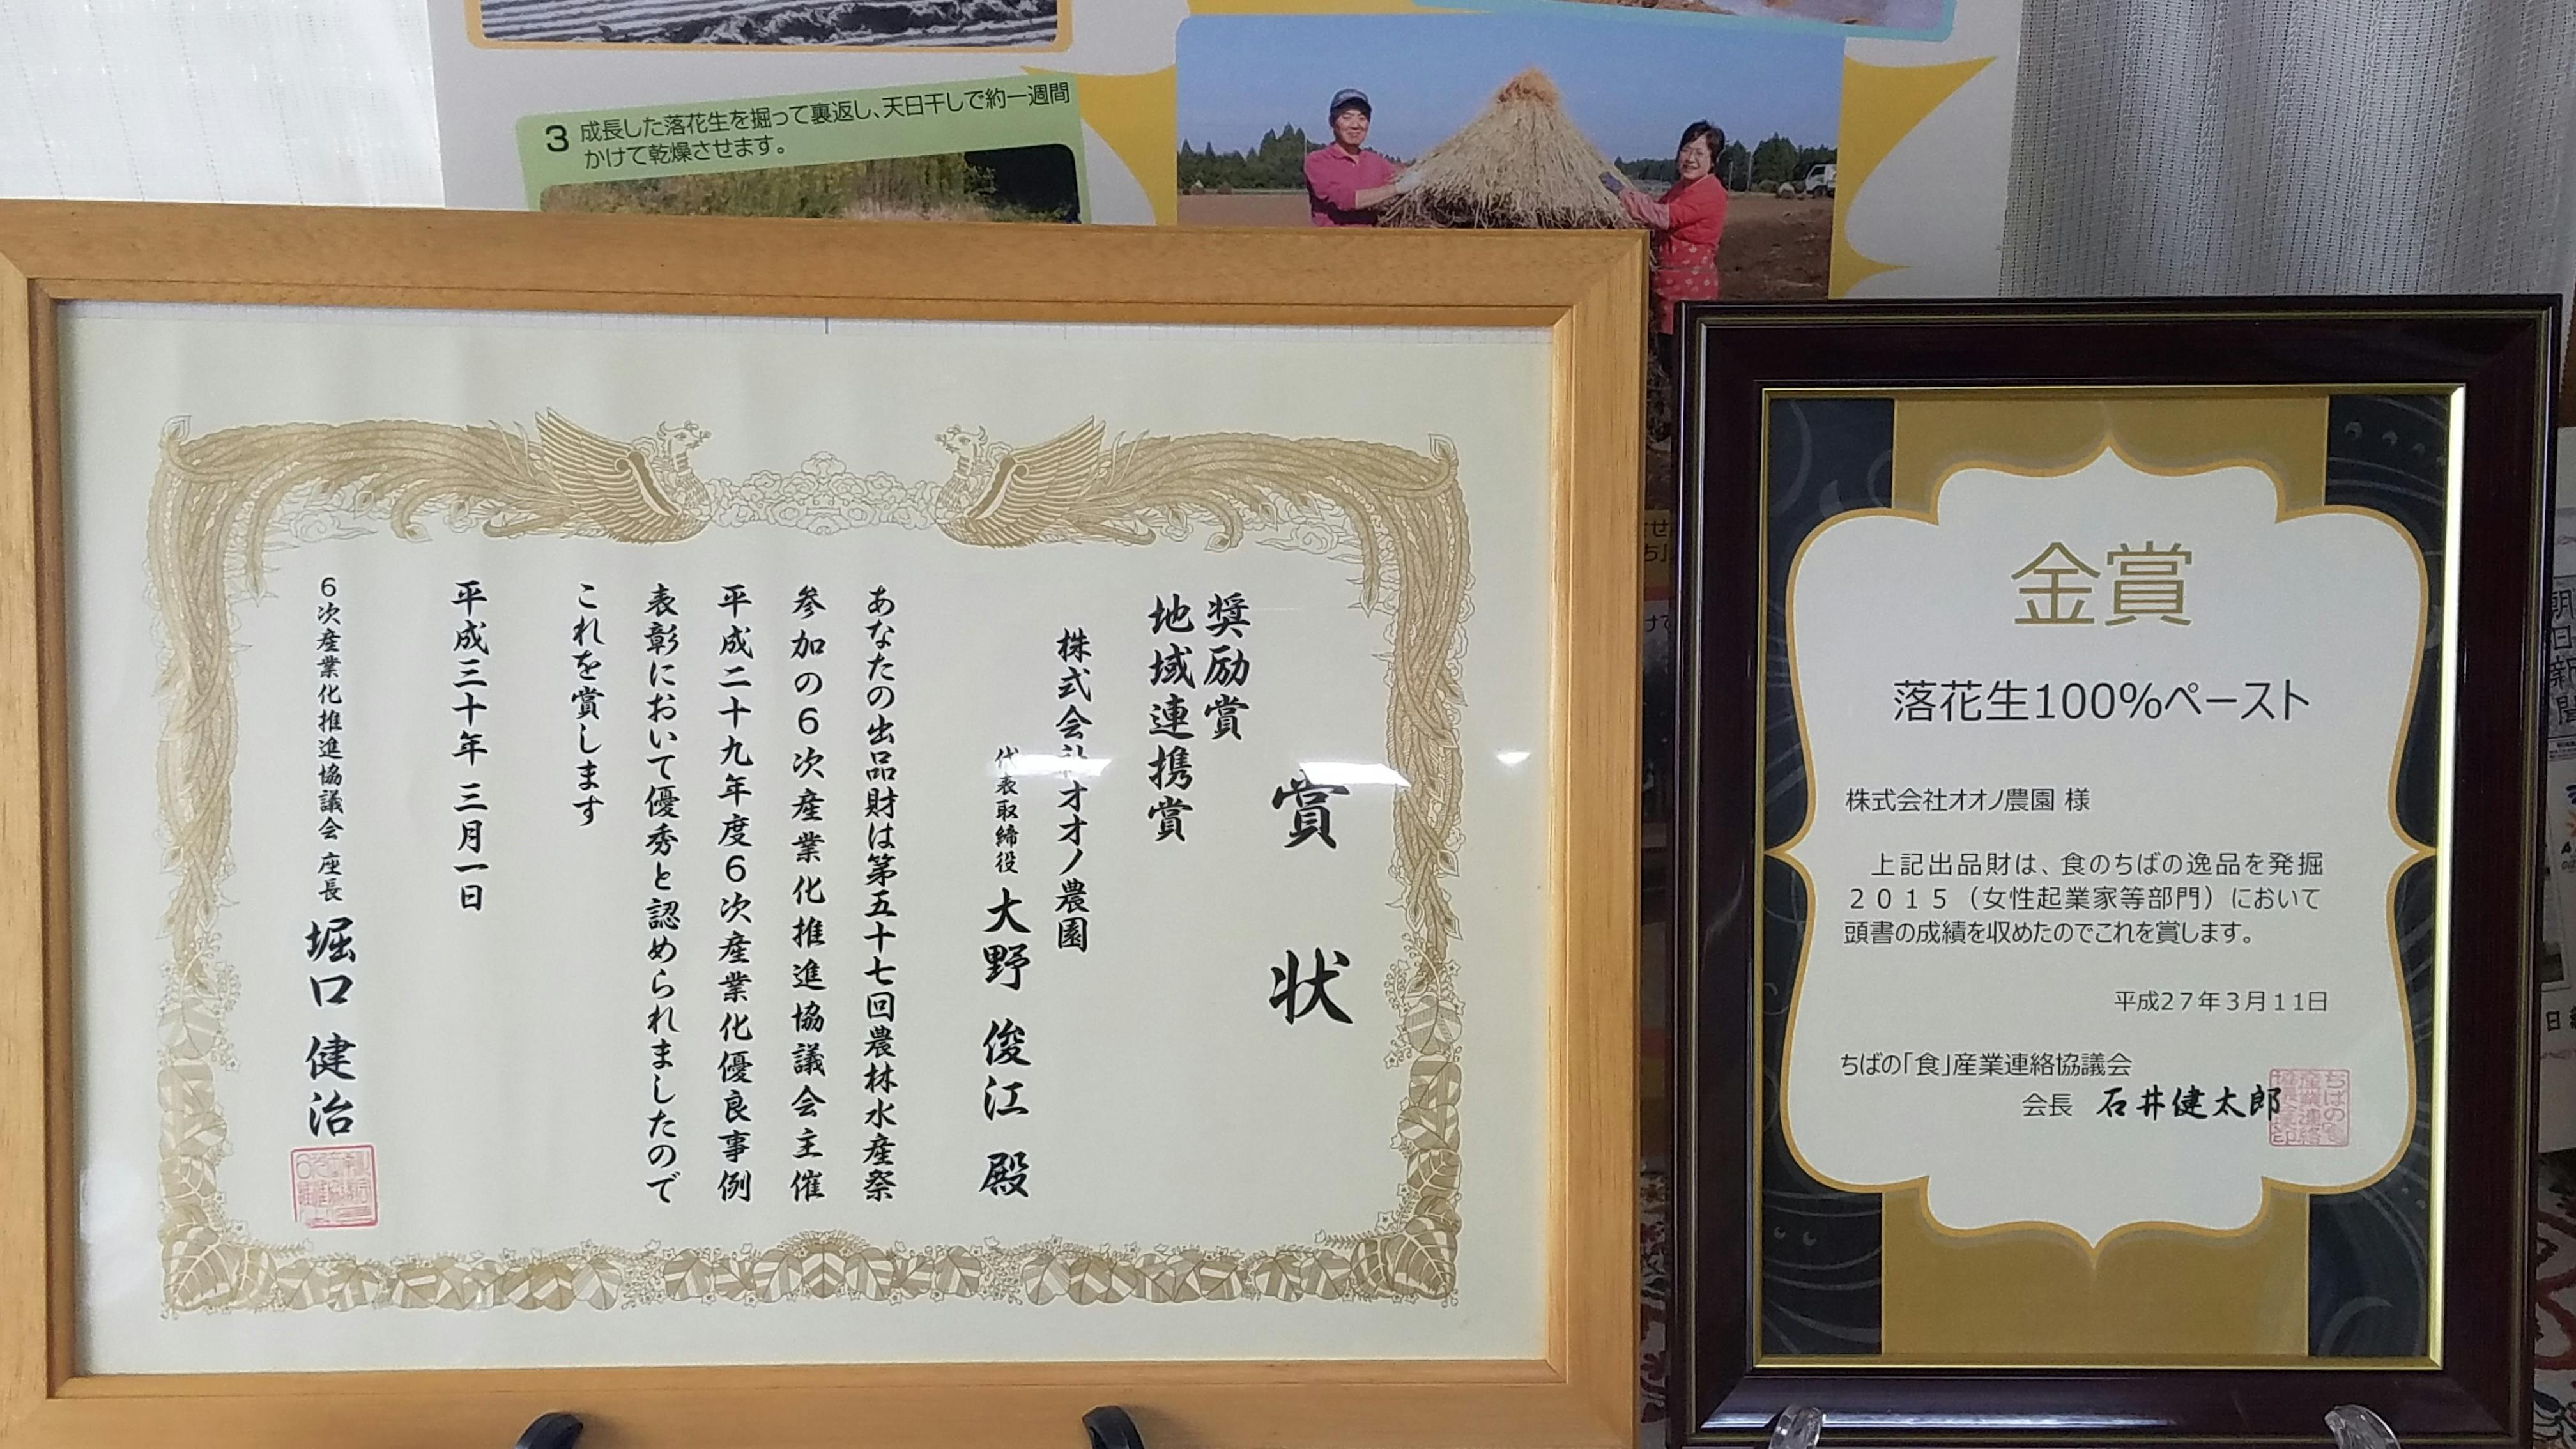 3 成長した落花生を掘って裏返し、天日干しで約一週間
かけて乾燥させます。
賞状
奨励賞
地域連携賞
株式会社オオノ農園
代表取締役 大野 俊江 殿
あなたの出品財は第五十七回農林水産祭
参加の6次産業化推進協議会主催
平成二十九年度6次産業化優良事例
表彰において優秀と認められましたので
これを賞します
平成三十年 三月一日
6次産業化推進協議会 座長 堀口 健治
金賞
落花生100%ペースト
株式会社オオノ農園 様
上記出品財は、食のちばの逸品を発掘
2015（女性起業家等部門）において
頭書の成績を収めたのでこれを賞します。
平成27年3月11日
ちばの「食」産業連絡協議会
会長 石井健太郎
朝日新聞